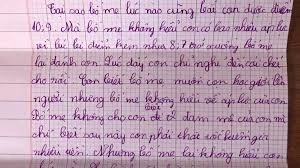 Tại sao bố mẹ lúc nào cũng bắt con được điểm
10, 9. Mà bố mẹ không hiểu con có bao nhiêu áp lực
vì lúc bị điểm kém như 8, 7 trở xuống bố mẹ
lại đánh con. Lúc đấy con chỉ nghĩ đến cái chết
cho rồi. Con biết bố mẹ muốn con học giỏi lên
người nhưng bố mẹ không hiểu về áp lực của con.
Bố mẹ không cho con đi đam mê của con mà
chỉ biết sau này con phải
nhiều tiền. Nhưng bố mẹ lại không hiểu